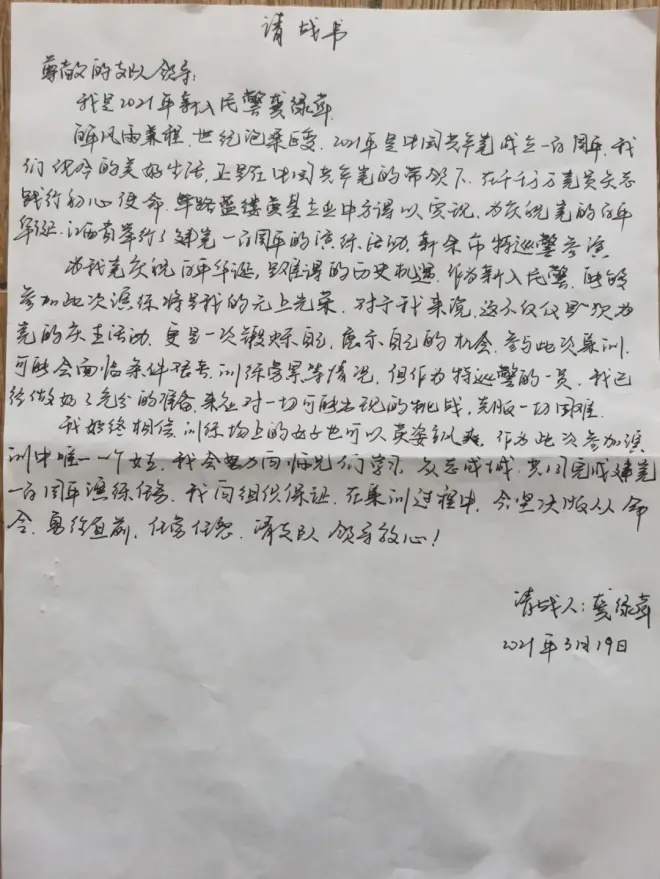 请战书
尊敬的支队领导:
我是2021年新入民警龚绿草
百年风雨兼程,世纪沧桑巨变,2021年是中国共产党成立一百周年,我
们现今的美好生活,正是在中国共产党的带领下,在千千万万党员矢志
践行初心使命,筚路蓝缕奠基立业中方得以实现,为庆祝党的百年
华诞,江西省举行了建党一百周年的演练活动,新余市特巡警参演
为我党庆祝百年华诞,是难得的历史机遇,作为新入民警,能够
参加此次演练将是我的无上光荣,对于我来说,这不仅仅是一次为
党的庆生活动,更是一次锻炼自己,展示自己的机会,参与此次集训,
可能会面临条件艰苦,训练劳累等情况,但作为特巡警的一员,我已
经做好了充分的准备,来应对一切可能出现的挑战,克服一切困难.
我始终相信,训练场上的女子也可以英姿飒爽,作为此次参加演
训中唯一一个女生,我会努力向师兄们学习,众志成城,共同完成建党
一百周年演练任务,我向组织保证,在集训过程中,会坚决服从命
令,勇往直前,任劳任怨,请支队领导放心!
请战人:龚绿
2021年3月19日